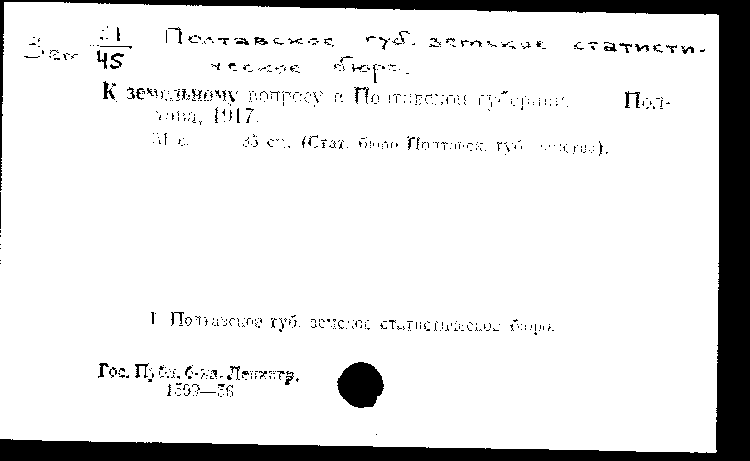 Зем 21/45 Полтавское губ. земское статисти-
ческое бюро.
К земельному вопросу в Полтавской губернии. Пол-
тава, 1917.
31 с. 33 см. (Стат. бюро Полтавск. губ. земства).
1 Полтавское губ. земское статистическое бюро.
Гос. Публ. б-ка. Ленингр.
1599—56